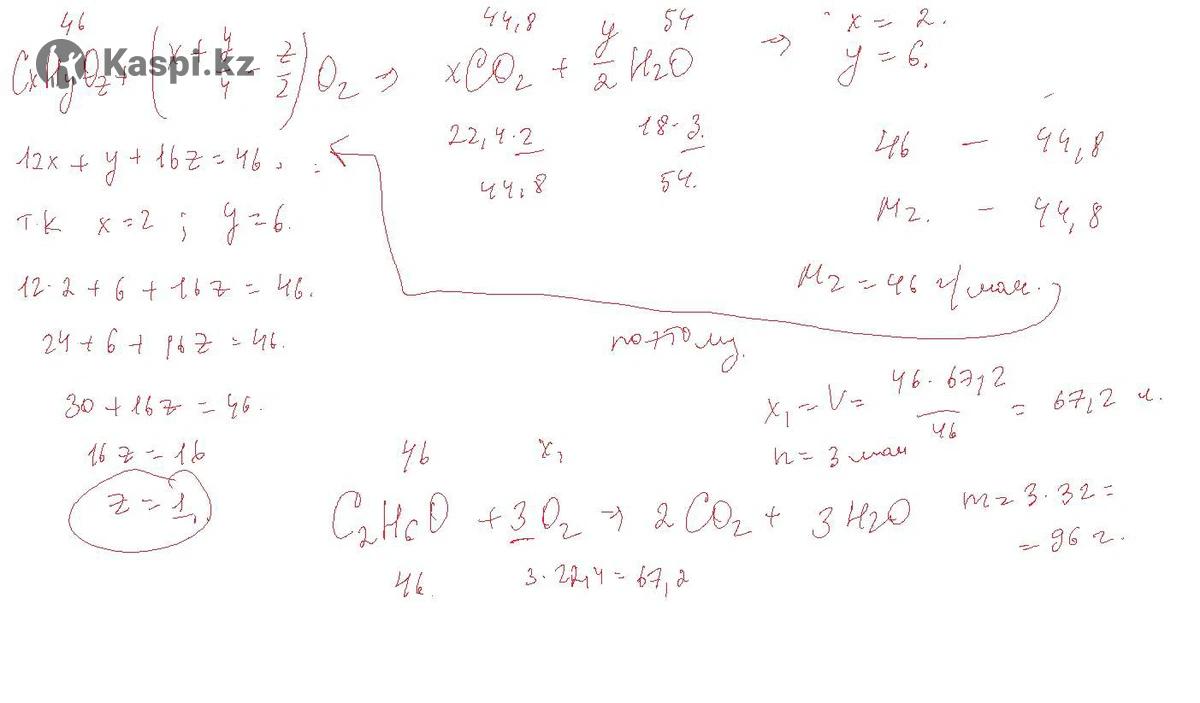 46 44,8 54
CxHyOz + (x + y/4 - z/2) O2 ⇒ xCO2 + y/2 H2O ⇒ x = 2.
y = 6.
Kaspi.kz
22,4·2 18·3.
44,8 54.
12x + y + 16z = 46.
т.к x = 2 ; y = 6.
12·2 + 6 + 16z = 46.
24 + 6 + 16z = 46.
30 + 16z = 46.
16z = 16
z = 1,
46 — 44,8
Mz. — 44,8
Mz = 46 г/моль.
поэтому.
x1 = V = 46·67,2 / 46 = 67,2 л.
n = 3 моль
46 x1
C2H6O + 3O2 ⇒ 2CO2 + 3H2O
46. 3·22,4 = 67,2
m = 3·32 =
= 96 г.